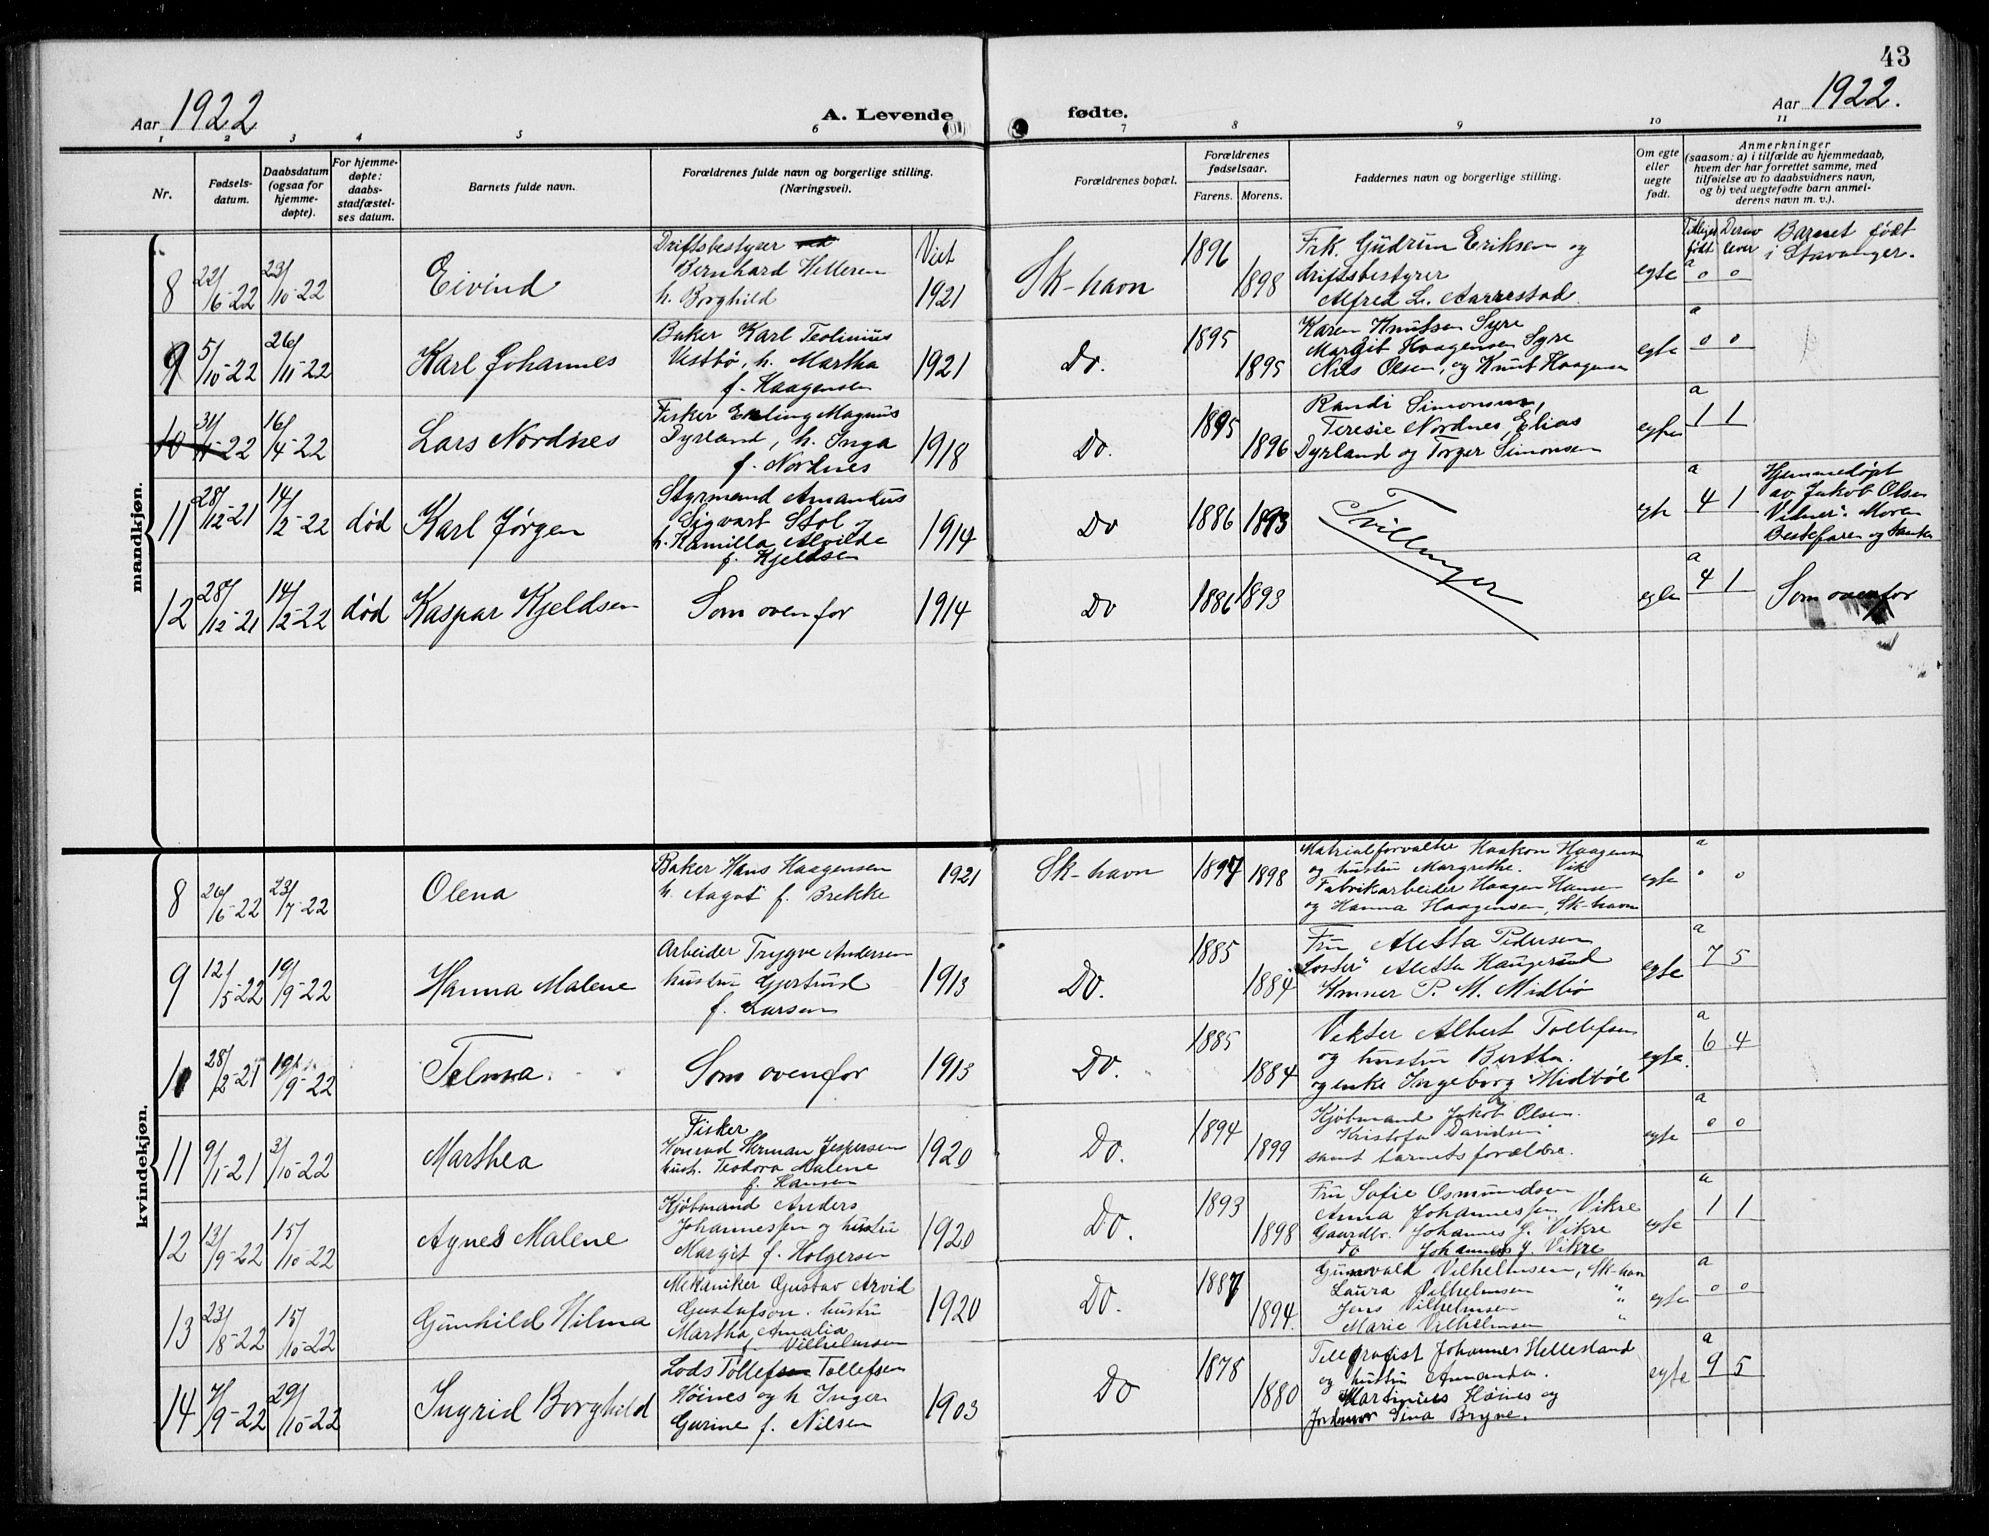 43
Aar 1922
A. Levende
fødte.
Aar 1922.
1 2 3 4 5 6 7 8 9 10 11
Nr.
Fødsels-
datum.
Daabsdatum
(ogsaa for
hjemme-
døpte).
For hjemme-
døpte:
daabs-
stadfæstel-
ses datum.
Barnets fulde navn.
Forældrenes fulde navn og borgerlige stilling.
(Næringsvei).
Forældrenes bopæl.
Forældrenes
fødselsaar.
Farens. Morens.
Faddernes navn og borgerlige stilling.
Om egte
eller
uegte
født.
Anmerkninger
(saasom: a) i tilfælde av hjemmedaab,
hvem der har forrettet samme, med
tilføielse av to daabsvidners navn,
og b) ved uegtefødte barn anmel-
derens navn m. v.).
mandkjøn.
8 22/6-22 23/10-22 Eivind
Driftsbestyrer
Bernhard Helleren
h. Borghild
Viet
1921
Sk-havn 1896 1898
Frk. Gudrun Eriksen og
driftsbestyrer
Alfred L. Aarrestad
egte
Tidligere født Derav lever
a
0 0
Barnet født
i Stavanger.
9 5/10-22 26/11-22 Karl Johannes
Baker Karl Teolinius
Vestbø, h. Martha
f. Haagensen
1921
Do. 1895 1895
Karen Knutsen Syre
Margit Haagensen Syre
Nils Olsen, og Knut Haagensen
egte
a
0 0
10 31/1-22 16/4-22 Lars Nordnes
Fisker Erling Magnus
Dyrland, h. Inga
f. Nordnes
1918
Do. 1895 1896
Randi Simonsen,
Teresie Nordnes, Elias
Dyrland og Torger Simonsen
egte
a
1 1
11 28/12-21 14/2-22 død Karl Jørgen
Styrmand Amandus
Sigvart Stol og
h. Kamilla Alvilde
f. Kjeldsen
1914
Do 1886 1893
Tvillinger
egte
a
4 1
Hjemmedøpt
av Jakob Olsen
Vidner: Moren
Bestefaren og tanten
12 28/12-21 14/2-22 død Kaspar Kjeldsen
Som ovenfor
1914
Do 1886 1893
egte
a
4 1
Som ovenfor
kvindekjøn.
8 26/6-22 23/7-22 Olena
Baker Hans Haagensen
h. Aagot f. Brekke
1921
Sk-havn 1897 1898
Matrialforvalter Haakon Haagensen
og hustru Margrethe. Vik
Fabrikarbeider Haagen Hansen
og Hanna Haagensen, Sk-havn
egte
a
0 0
9 12/5-22 19/9-22 Hanna Malene
Arbeider Trygve Andersen
hustru Gjertrud
f. Larsen
1913
Do. 1885 1884
Fru Aletta Pedersen
Aletta Haugerud
P. M. Midbø
egte
a
7 5
10 28/2-21 19/9-22 Telma.
Som ovenfor
1913
Do. 1885 1884
Vekter Albert Tollefsen
og hustru Bertha.
og enke Ingeborg Midbøe
egte.
a
6 4
11 9/1-21 3/10-22 Marthea
Fisker
Konrad Herman Jespersen
hust. Teodora Malene
f. Hansen
1920
Do. 1894 1899
Kjøbmand Jakob Olsen.
Kristofa Davidsen
samt barnets forældre.
egte
a
0 0
12 13/9-22 15/10-22 Agnes Malene
Kjøbmand Anders
Johannessen og hustru
Margit f. Holgersen
1920
Do. 1893 1898
Fru Sofie Osmundsen
Anna Johannessen Vikre
Gaardbr. Johannes G. Vikre
do Johannes J. Vikre
egte
a
1 1
13 23/8-22 15/10-22 Gunhild Hilma
Mekaniker Gustav Arvid
Gustafson. hustru
Martha Amalia
f. Vilhelmsen
1920
Do. 1887 1894.
Gunvald Vilhelmsen, Sk-havn
Laura Vilhelmsen "
Jens Vilhelmsen "
Marie Vilhelmsen "
egte
a
0 0
14 7/9-22 29/10-22 Ingrid Borghild
Lods Tollef Tollefsen
Høines og h Inger
Gurine f. Nilsen
1903
Do 1878 1880
Telegrafist Johannes Hellesland
og hustru Amanda.
Martinius Høines og
Jordmor Sina Bryne.
egte
a
9 5